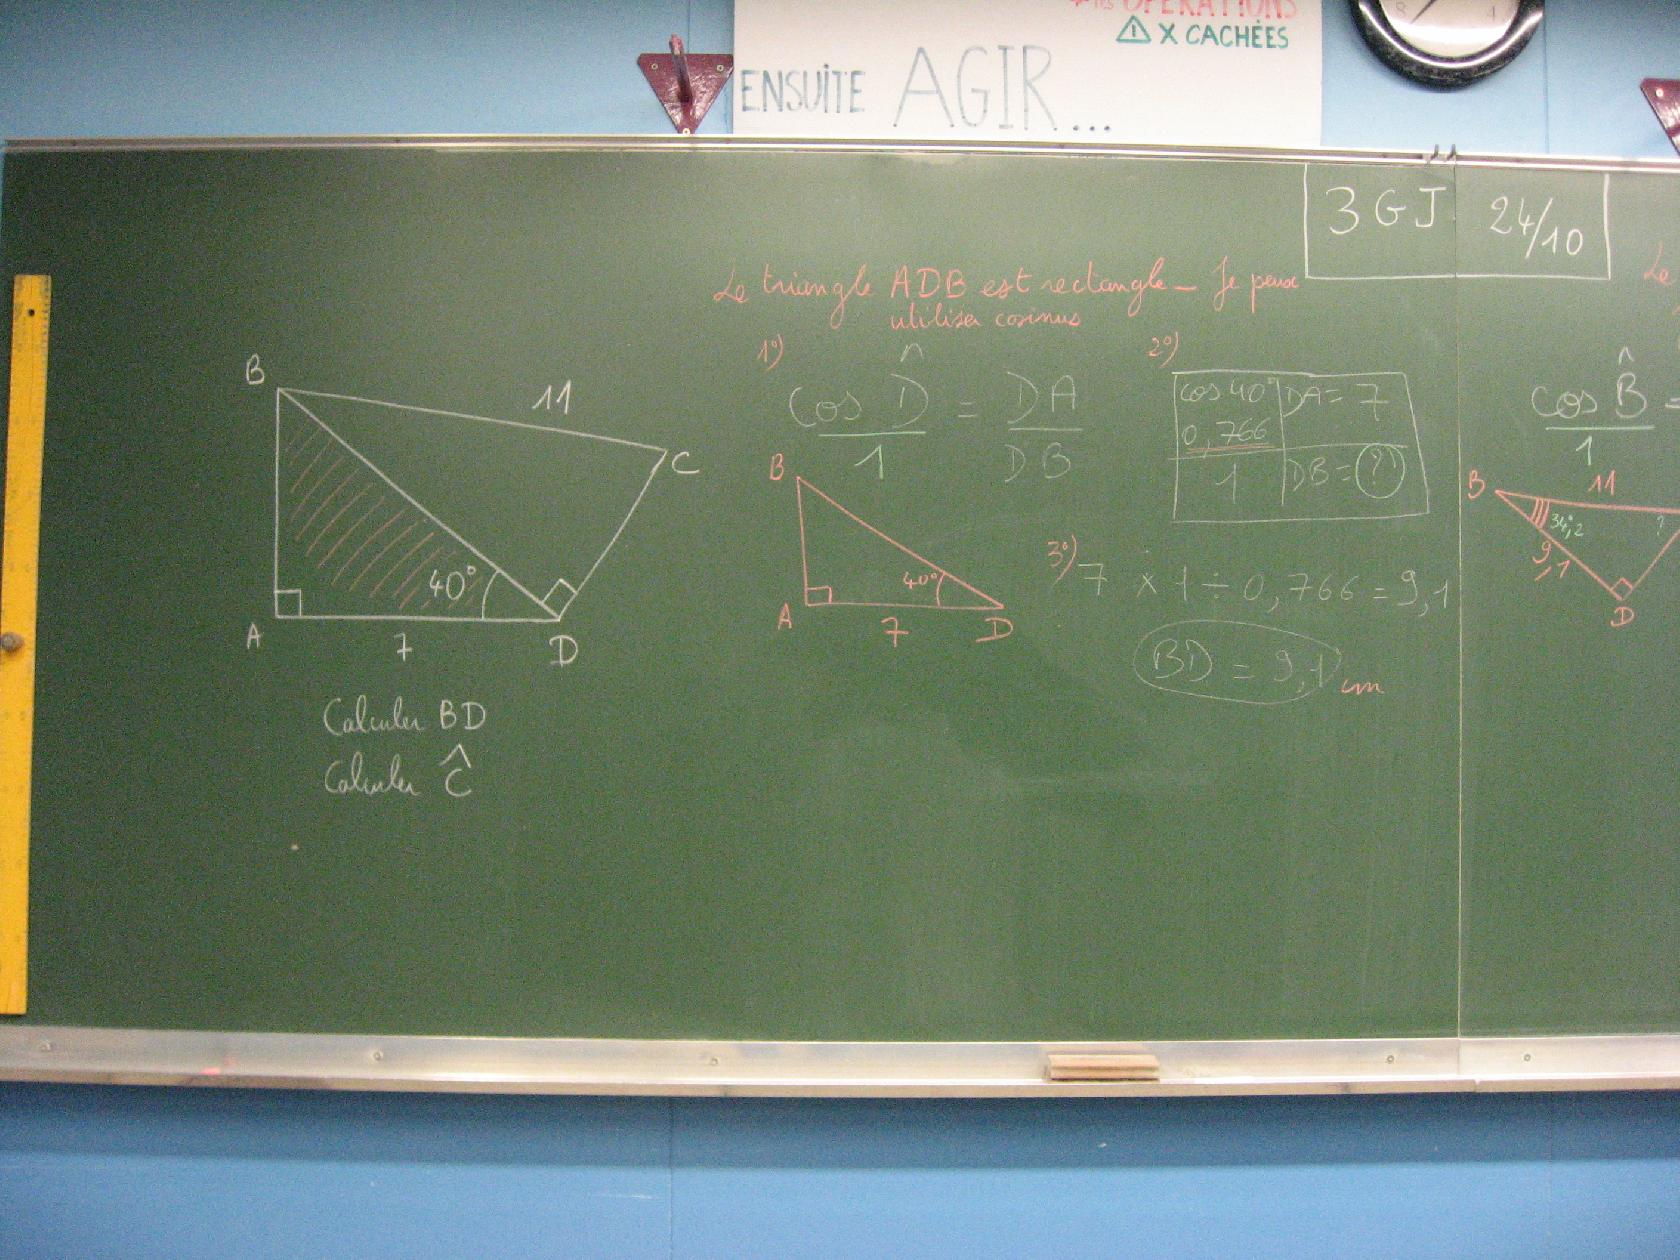 OPÉRATIONS
⚠ X CACHÉES
ENSUITE AGIR...
8 4
3GJ 24/10
B
11
C
40°
A
7
D
Calculer BD
Calculer Ĉ
Le triangle ADB est rectangle - Je peux
utiliser cosinus
1°)
cos D̂ = DA
1 DB
B
40°
A
7
D
2°)
cos 40° DA = 7
0,766
1 DB = ?
3°) 7 x 1 ÷ 0,766 = 9,1
BD = 9,1 cm
Le
cos B̂ =
1
B
11
34,2
?
9,1
D